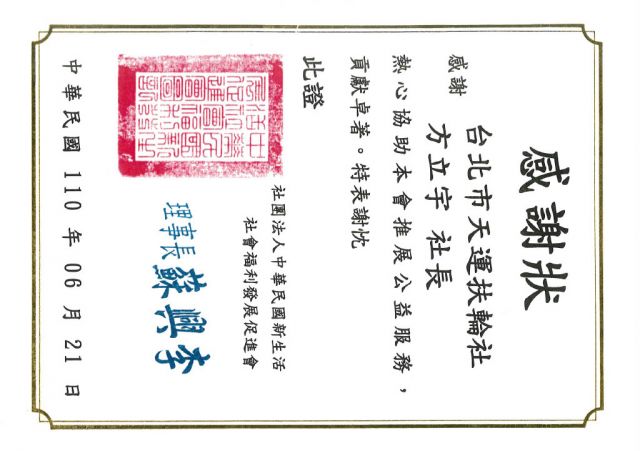 感謝狀
感謝
台北市天運扶輪社
方立宇 社長
熱心協助本會推展公益服務，
貢獻卓著。特表謝忱
此證
社團法人中華民國新生活
社會福利發展促進會
理事長
中華民國 110 年 06 月 21 日